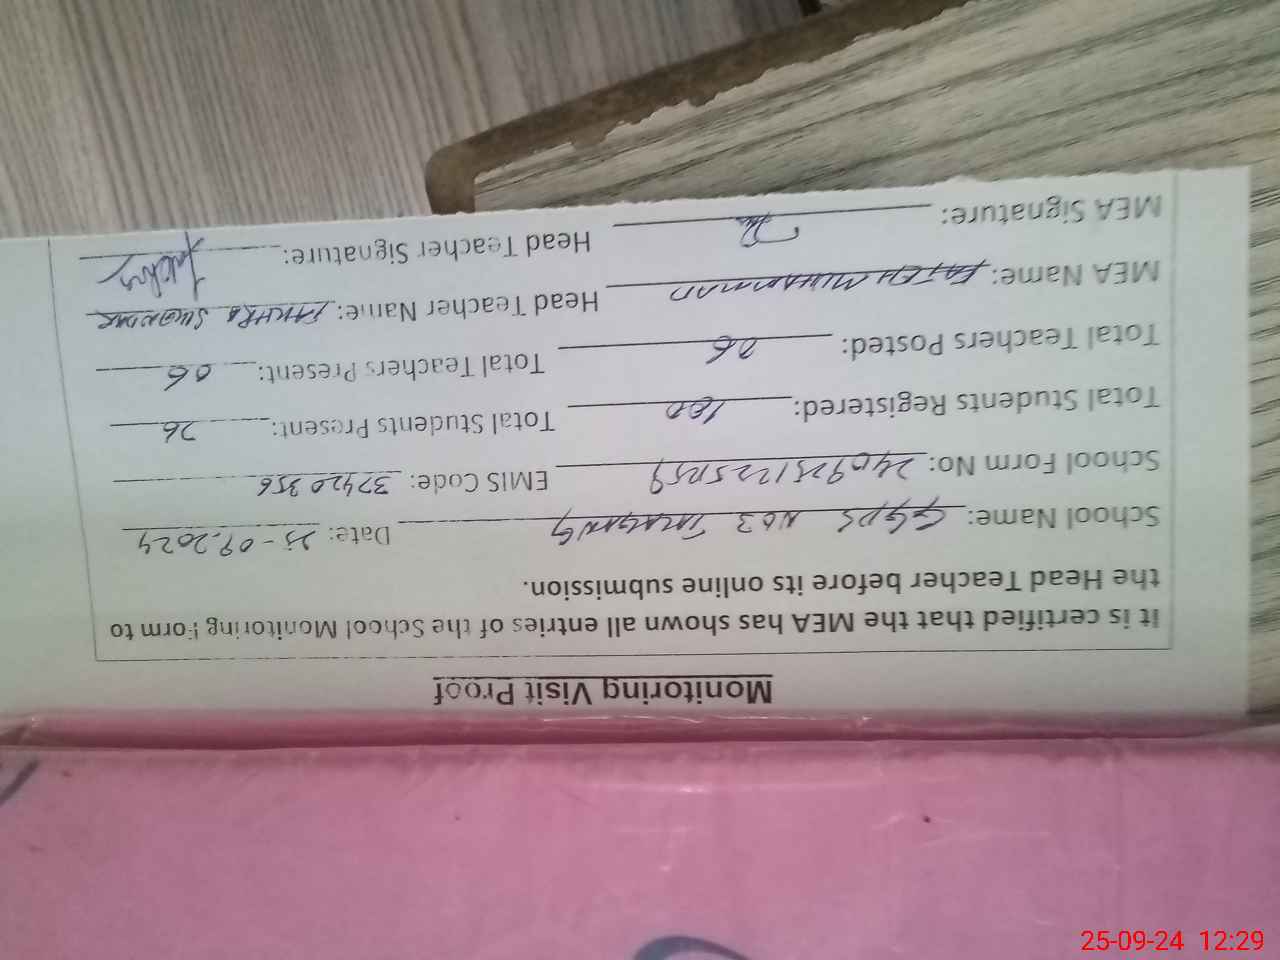 Monitoring Visit Proof
It is certified that the MEA has shown all entries of the School Monitoring Form to
the Head Teacher before its online submission.
School Name: GGPS NO3 Date: 25-09-2024
School Form No: 2409251225059 EMIS Code: 37420356
Total Students Registered: 100 Total Students Present: 76
Total Teachers Posted: 06 Total Teachers Present: 06
MEA Name: FATEH MUHAMMAD Head Teacher Name: FAKHRA
MEA Signature: Head Teacher Signature:
25-09-24 12:29